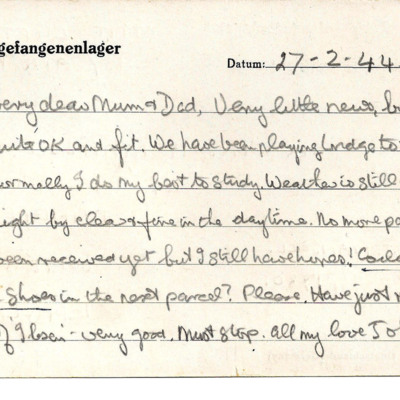 gefangenenlager
Datum: 27-2-44
very dear Mum & Dad, Very little news, b
quite OK and fit. We have been playing bridge to
normally I do my best to study. Weather is still
ight by clear & fine in the daytime. No more pa
been received yet but I still have hopes! Could
Shoes in the next parcel? Please. Have just r
of Ibsen - very good. Must stop. All my love Jo